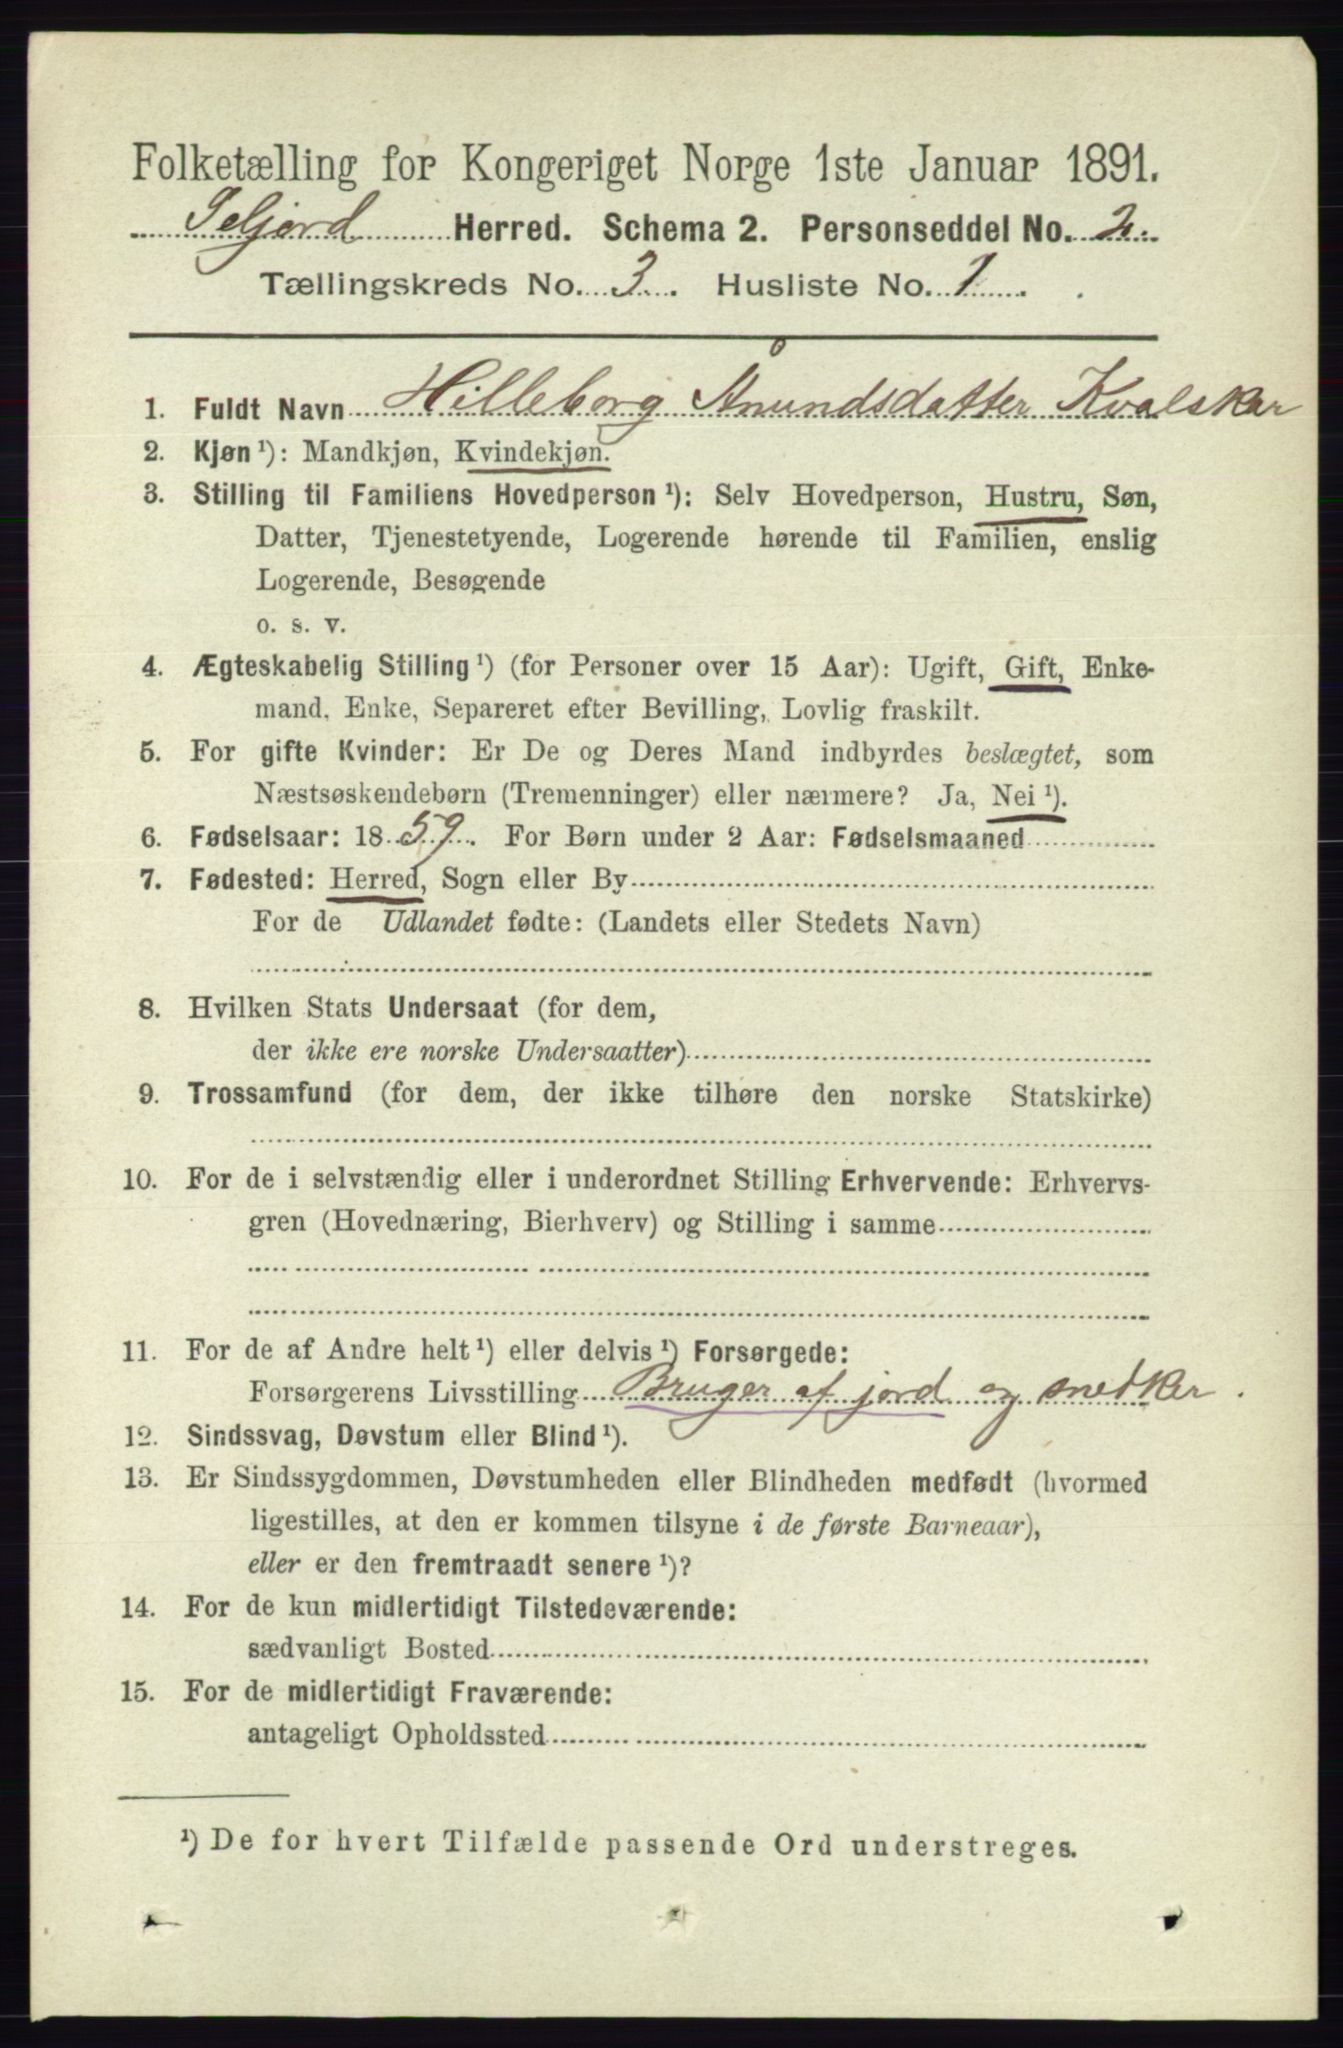 Folketælling for Kongeriget Norge 1ste Januar 1891.
Seljord Herred. Schema 2. Personseddel No. 2.
Tællingskreds No. 3. Husliste No. 1.
1. Fuldt Navn Hilleborg Ånundsdatter Kvalskar
2. Kjøn ¹): Mandkjøn, Kvindekjøn.
3. Stilling til Familiens Hovedperson ¹): Selv Hovedperson, Hustru, Søn,
Datter, Tjenestetyende, Logerende hørende til Familien, enslig
Logerende, Besøgende
o. s. v.
4. Ægteskabelig Stilling ¹) (for Personer over 15 Aar): Ugift, Gift, Enke-
mand, Enke, Separeret efter Bevilling, Lovlig fraskilt.
5. For gifte Kvinder: Er De og Deres Mand indbyrdes beslægtet, som
Næstsøskendebørn (Tremenninger) eller nærmere? Ja, Nei ¹).
6. Fødselsaar: 1859. For Børn under 2 Aar: Fødselsmaaned
7. Fødested: Herred, Sogn eller By
For de Udlandet fødte: (Landets eller Stedets Navn)
8. Hvilken Stats Undersaat (for dem,
der ikke ere norske Undersaatter)
9. Trossamfund (for dem, der ikke tilhøre den norske Statskirke)
10. For de i selvstændig eller i underordnet Stilling Erhvervende: Erhvervs-
gren (Hovednæring, Bierhverv) og Stilling i samme
11. For de af Andre helt ¹) eller delvis ¹) Forsørgede:
Forsørgerens Livsstilling Bruger af jord og snedker.
12. Sindssvag, Døvstum eller Blind ¹).
13. Er Sindssygdommen, Døvstumheden eller Blindheden medfødt (hvormed
ligestilles, at den er kommen tilsyne i de første Barneaar),
eller er den fremtraadt senere ¹)?
14. For de kun midlertidigt Tilstedeværende:
sædvanligt Bosted
15. For de midlertidigt Fraværende:
antageligt Opholdssted
¹) De for hvert Tilfælde passende Ord understreges.